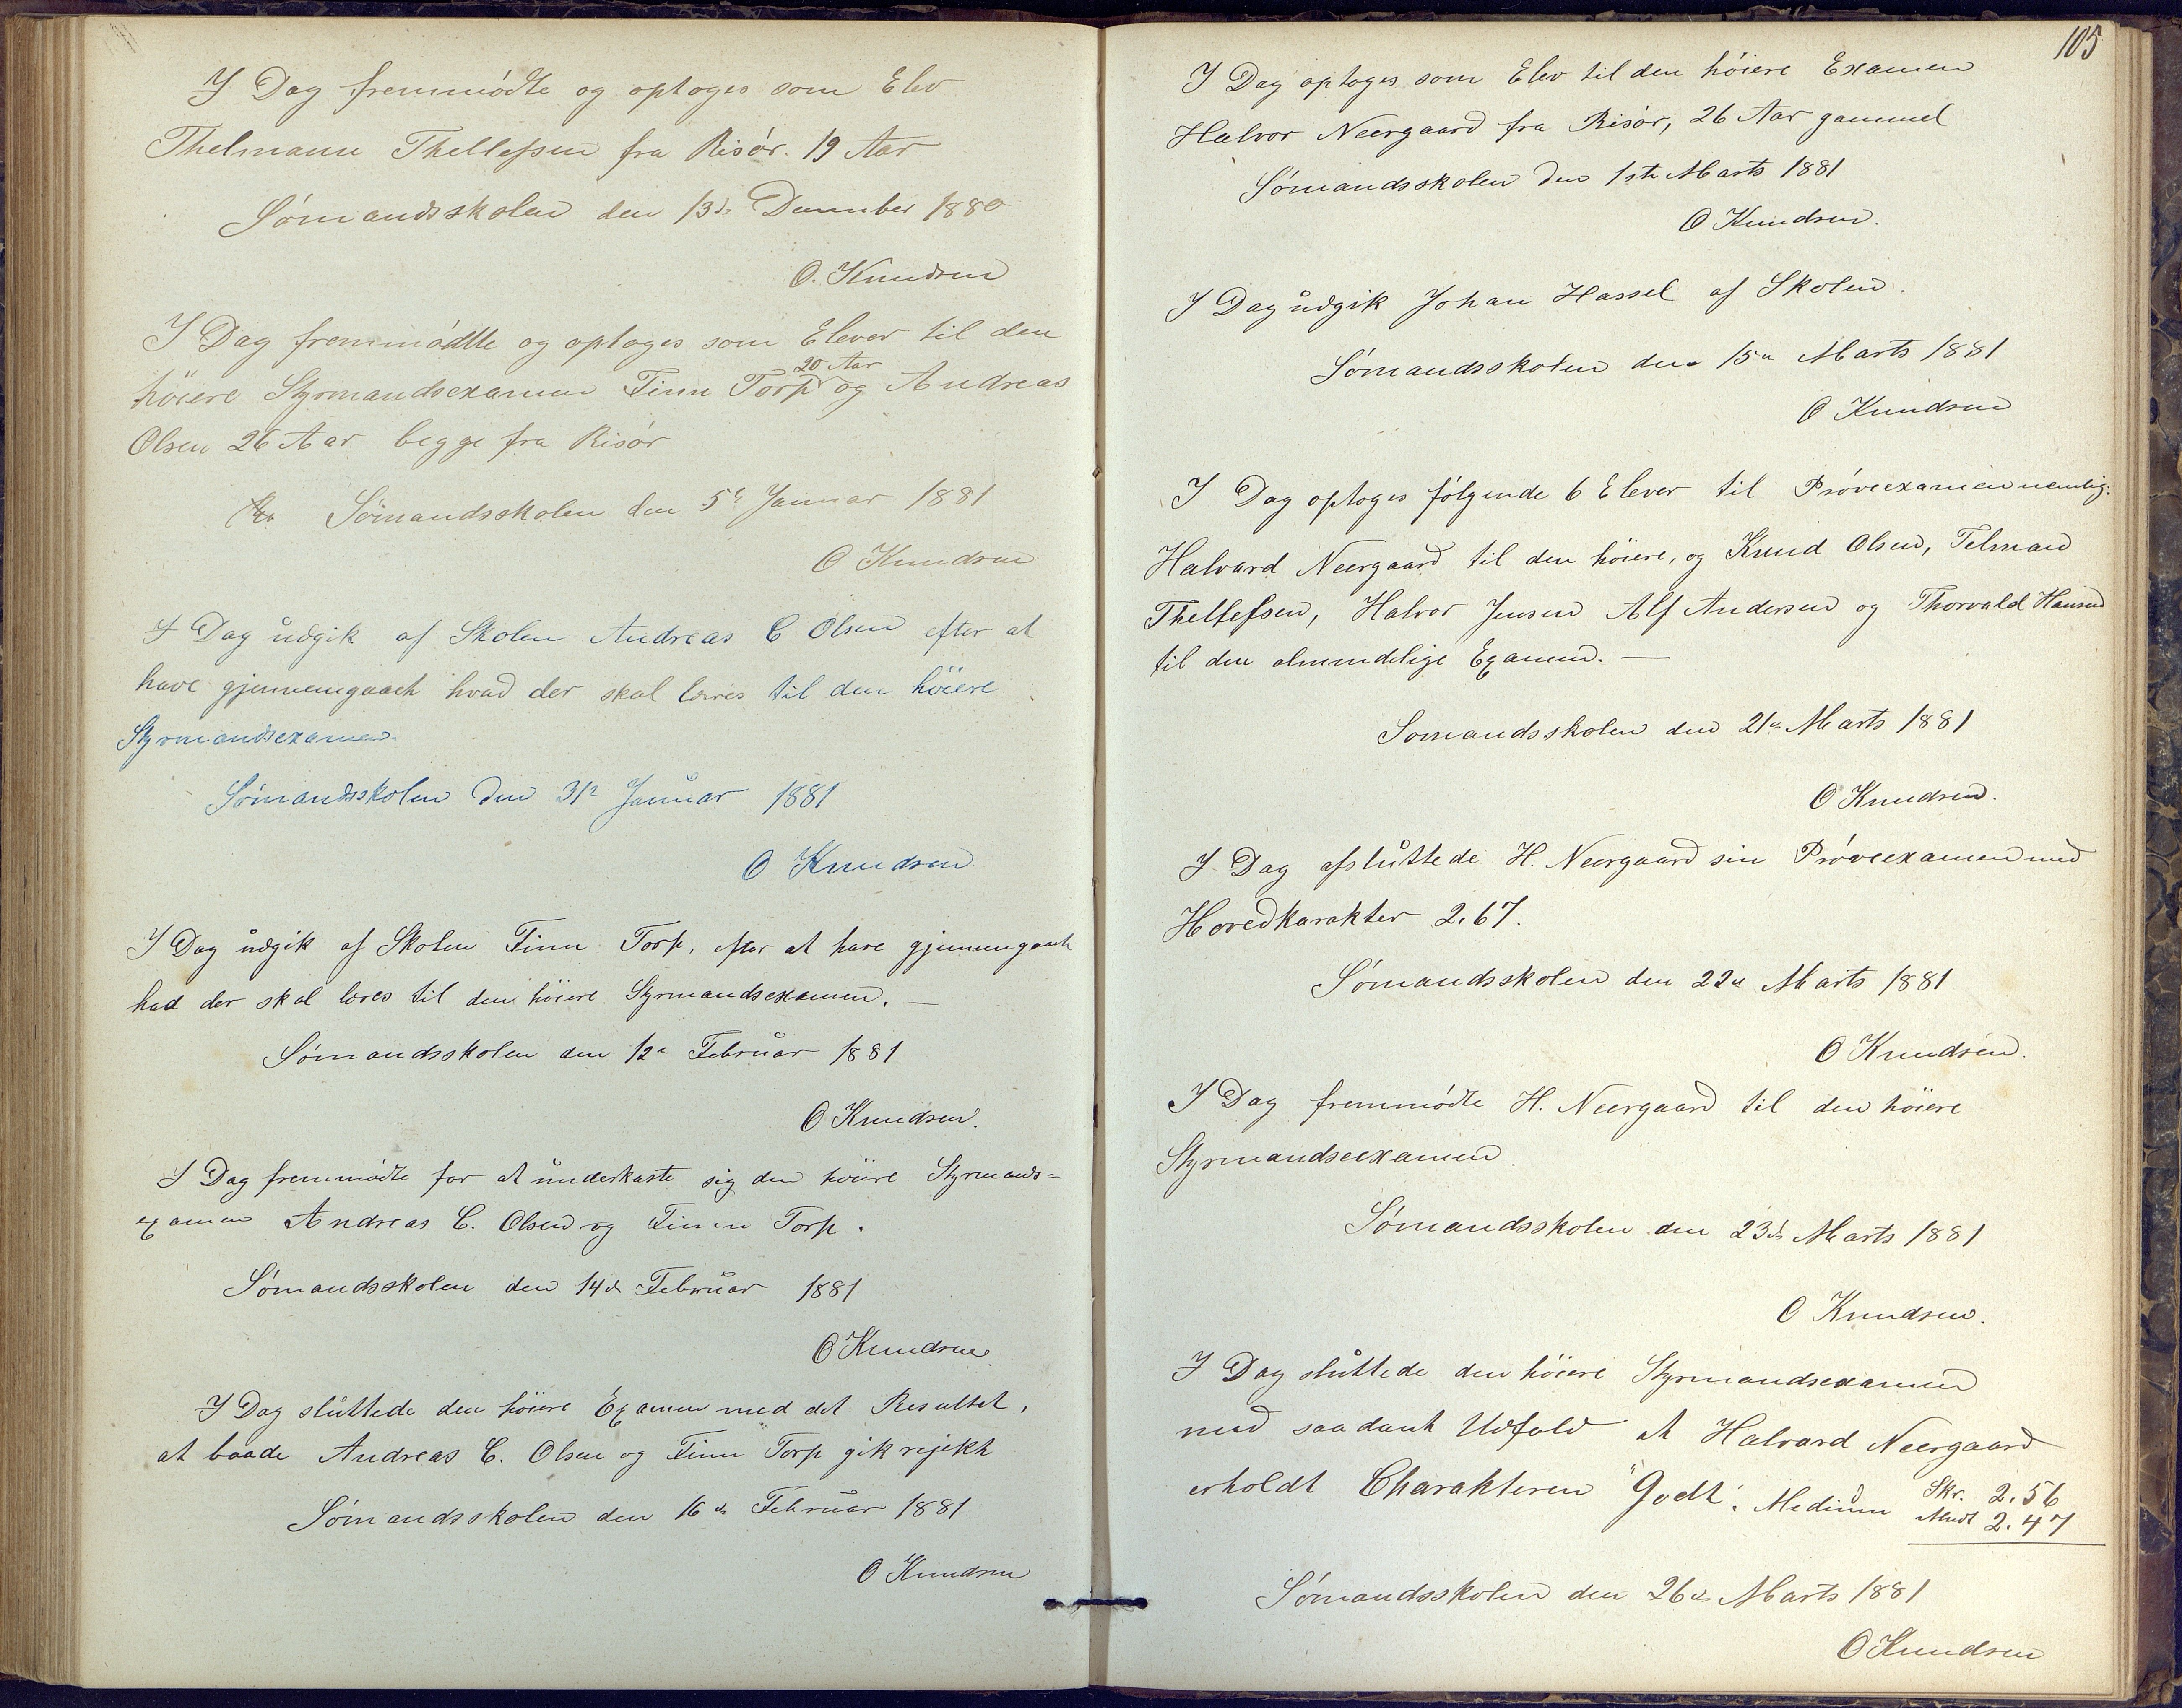 I Dag fremmødte og optoges som Elev
Thelmann Thellefsen fra Risør. 19 Aar
Sømandsskolen den 13de December 1880
O. Knudsen
I Dag fremmødtte og optoges som Elever til den
20 Aar
höiere Styrmandsexamen Finn Torp og Andreas
Olsen 26 Aar begge fra Risør
Sömandsskolen den 5te Januar 1881
O Knudsen
I Dag udgik af Skolen Andreas C Olsen efter at
have gjennemgaaet hvad der skal læres til den höiere
Styrmandsexamen.
Sömandsskolen den 31te Januar 1881
O Knudsen
I Dag udgik af Skolen Finn Torp, efter at have gjennemgaaet
had der skal læres til den höiere Styrmandsexamen. —
Sömandsskolen den 12te Februar 1881
O Knudsen.
I Dag fremmødte for at underkaste sig den höiere Styrmands=
examen Andreas C. Olsen og Finn Torp.
Sømandsskolen den 14de Februar 1881
O Knudsen.
I Dag sluttede den höiere Examen med det Resultet,
at baade Andreas C. Olsen og Finn Torp gik rejekt
Sømandsskolen den 16de Februar 1881
O Knudsen
105
I Dag optoges som Elev til den höiere Examen
Halvor Neergaard fra Risør, 26 Aar gammel
Sömandsskolen den 1ste Marts 1881
O Knudsen.
I Dag udgik Johan Hassel af Skolen.
Sømandsskolen den 15de Marts 1881
O Knudsen
I Dag optoges følgende 6 Elever til Prøveexamen nemlig:
Halvard Neergaard til den höiere, og Knud Olsen, Telman
Thellefsen, Halvor Jensen Alf Andersen og Thorvald Hansen
til den almindelige Examen. —
Somandsskolen den 21de Marts 1881
O Knudsen.
I Dag afsluttede H. Neergaard sin Prøveexamen med
Hovedkarakter 2.67.
Sømandsskolen den 22de Marts 1881
O Knudsen.
I Dag fremmødte H. Neergaard til den höiere
Styrmandseexamen.
Sømandsskolen den 23de Marts 1881
O Knudsen.
I Dag sluttede den höiere Styrmandsexamen
med saadant Udfald at Halvard Neergaard
erholdt Charakteren "Godt". Medium Skr. 2.56
Mndt 2.47
Sömandsskolen den 26de Marts 1881
O Knudsen